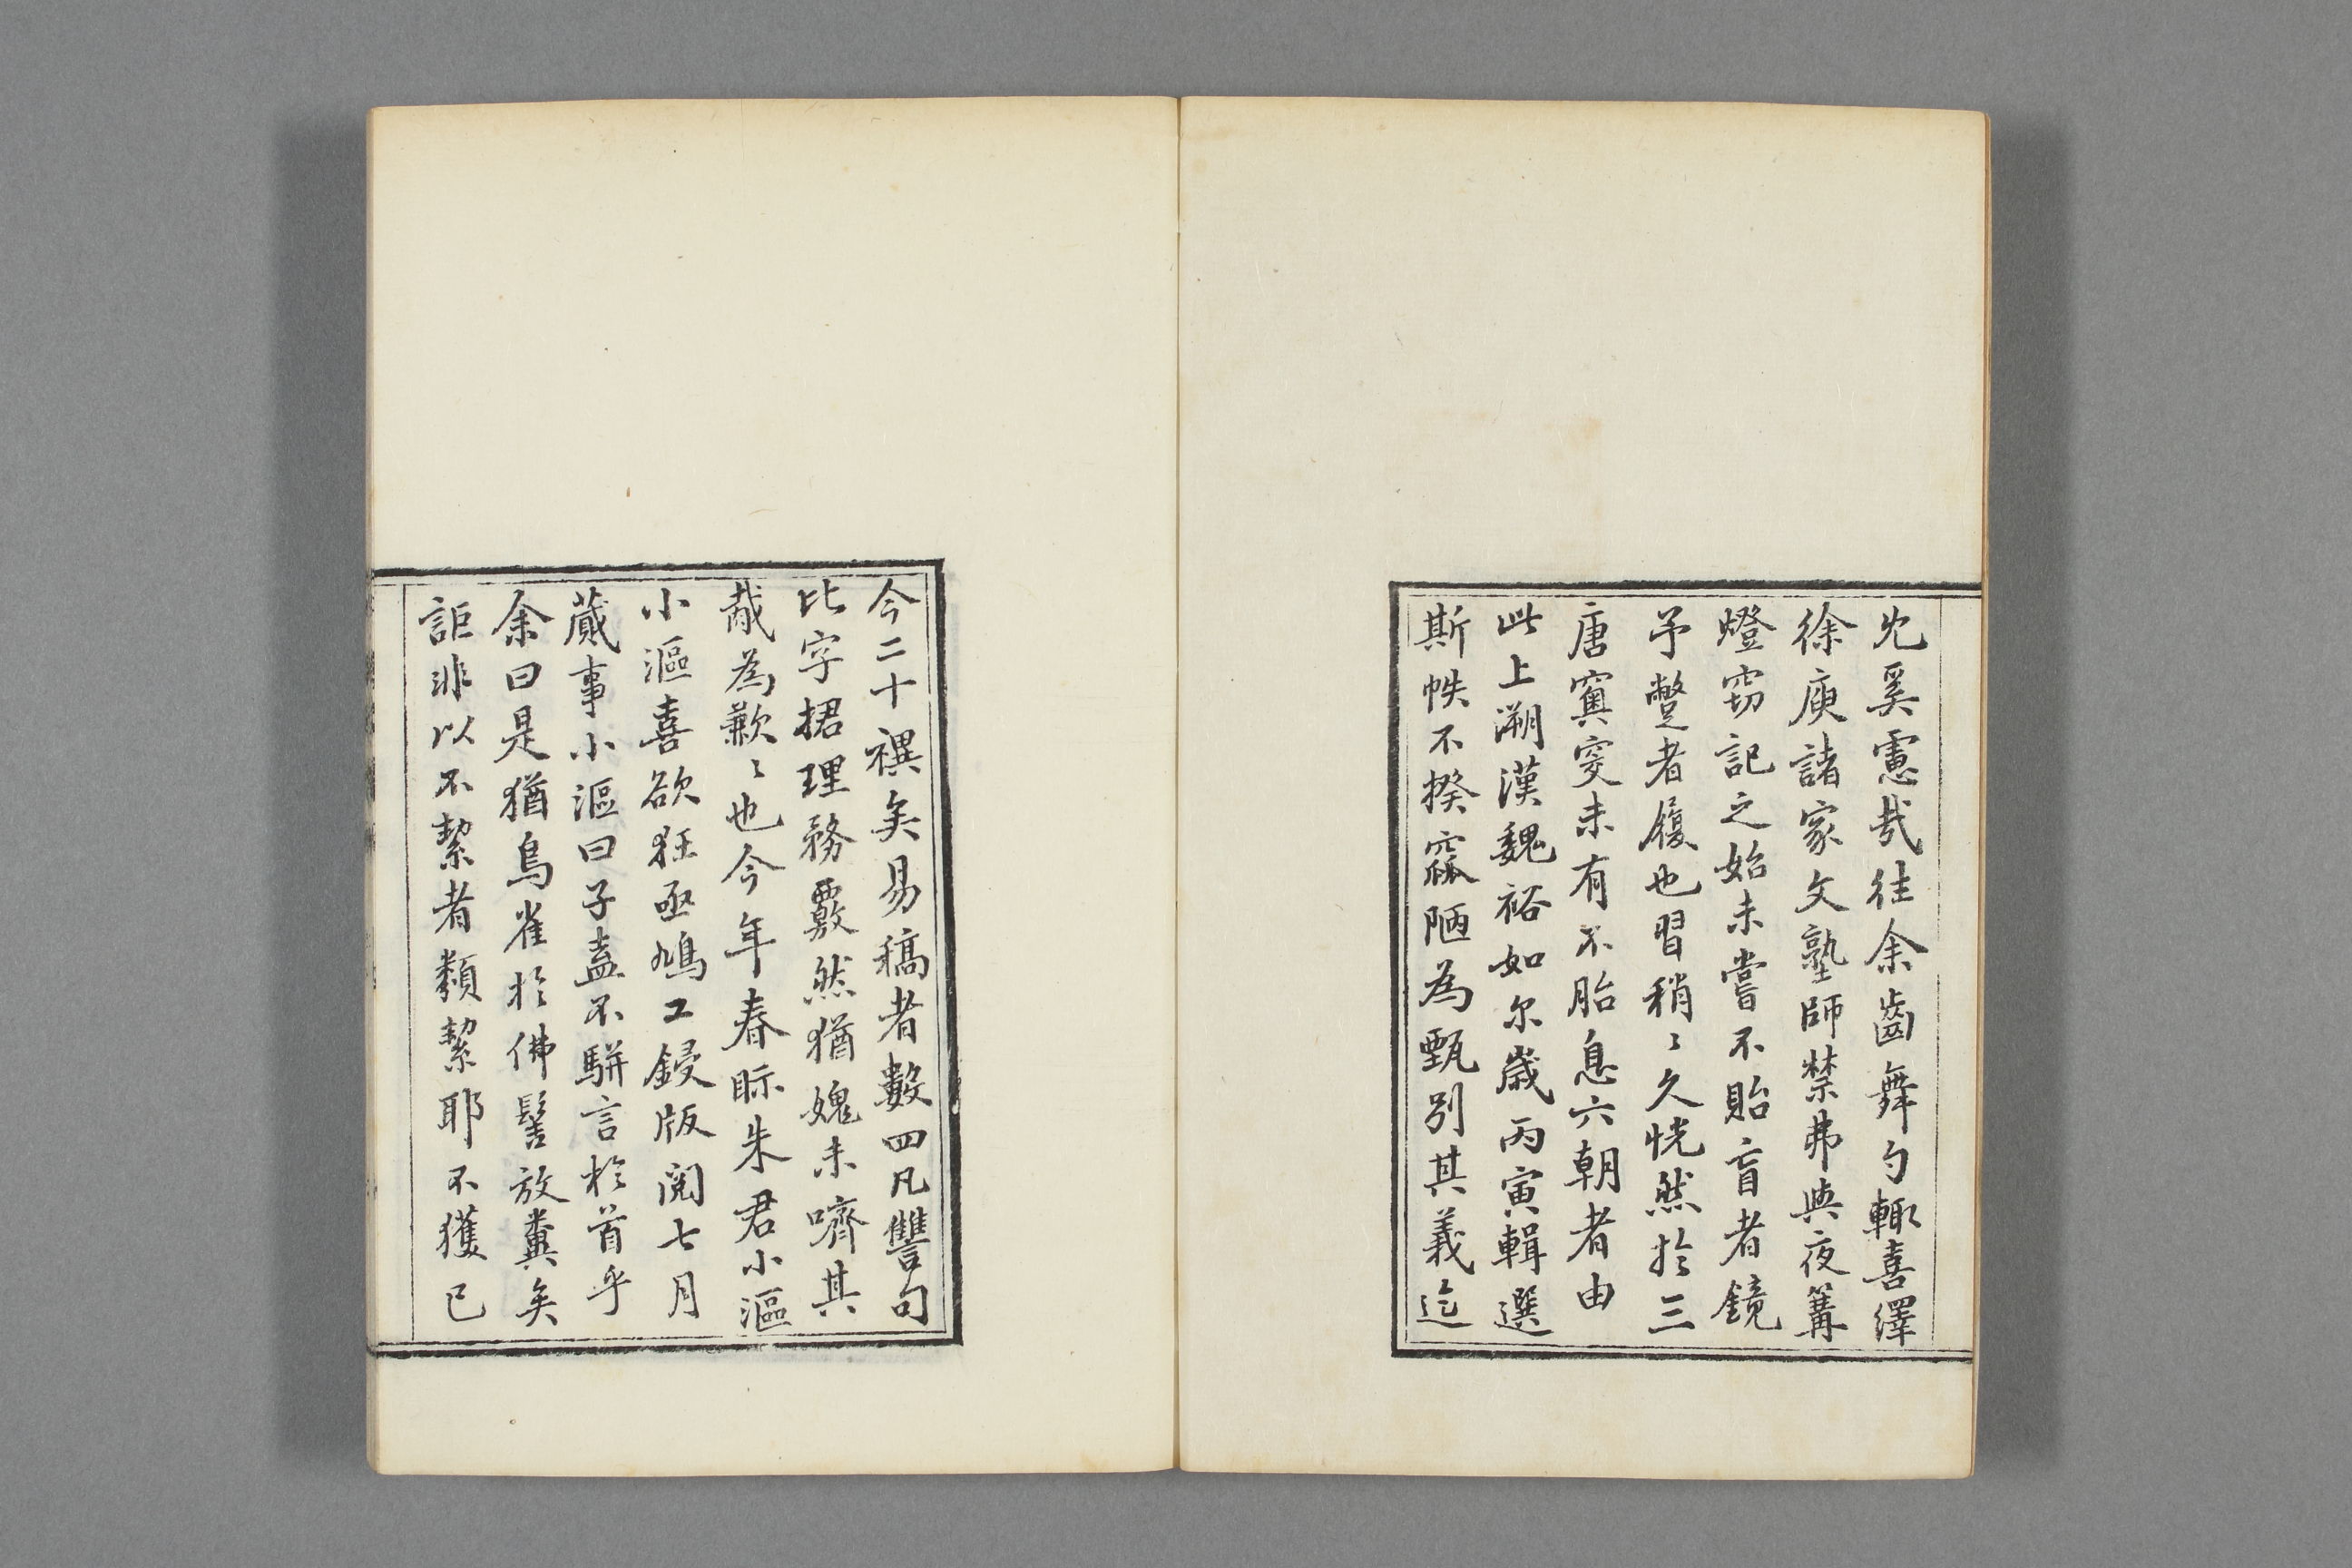 允奚慮哉往余齒舞勺輒喜繹
徐庾諸家文塾師禁弗與夜篝
燈窃記之始未嘗不貽盲者鏡
予躄者履也習稍〻久恍然於三
唐窔突未有不胎息六朝者由
此上溯漢魏裕如尔歲丙寅輯選
斯帙不揆窳陋為甄別其義迄
今二十禩矣易稿者數四凡讐句
比字捃理務覈然猶媿未嚌其
胾為歉〻也今年春眎朱君小漚
小漚喜欲狂亟鳩工鋟版閱七月
蕆事小漚曰子盍不駢言於首乎
余曰是猶鳥雀於佛髻放糞矣
詎非以不絜者纇絜耶不獲已